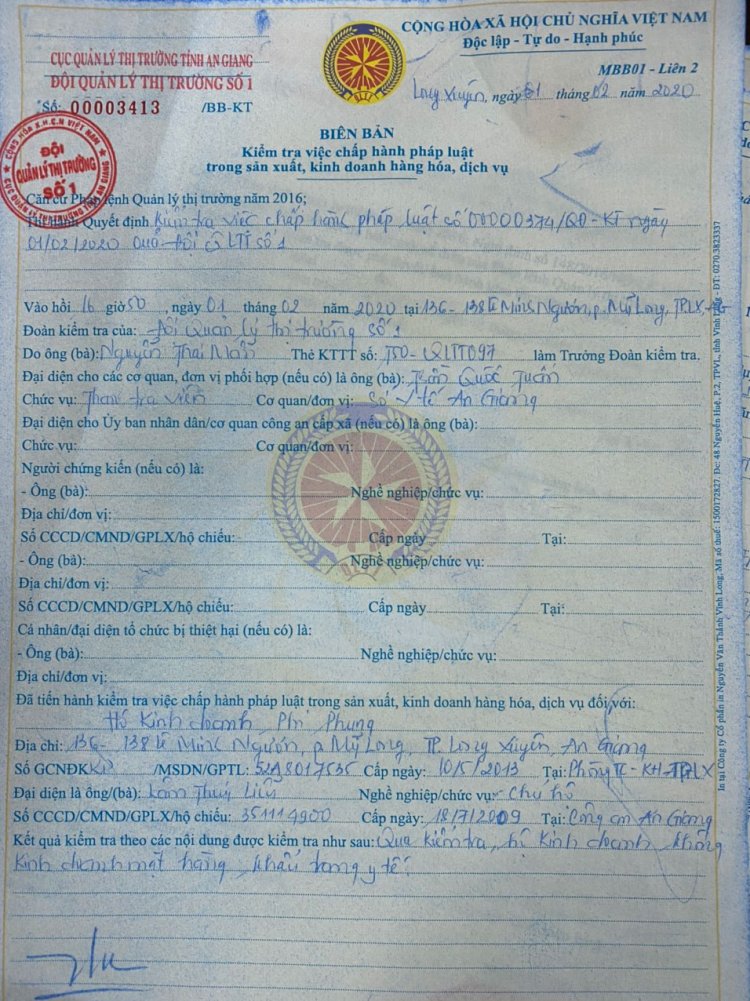 CỤC QUẢN LÝ THỊ TRƯỜNG TỈNH AN GIANG
ĐỘI QUẢN LÝ THỊ TRƯỜNG SỐ 1
Số: 00003413 /BB-KT
CỘNG HÒA XÃ HỘI CHỦ NGHĨA VIỆT NAM
Độc lập - Tự do - Hạnh phúc
MBB01 - Liên 2
Long Xuyên, ngày 01 tháng 02 năm 2020
CỘNG HÒA X.H.C.N VIỆT NAM
ĐỘI
QUẢN LÝ THỊ TRƯỜNG
SỐ 1
CỤC QUẢN LÝ THỊ TRƯỜNG TỈNH AN GIANG
BIÊN BẢN
Kiểm tra việc chấp hành pháp luật
trong sản xuất, kinh doanh hàng hóa, dịch vụ
Căn cứ Pháp lệnh Quản lý thị trường năm 2016;
Thi hành Quyết định kiểm tra việc chấp hành pháp luật số 00000374/QĐ-KT ngày
01/02/2020 của Đội QLTT số 1
Vào hồi 16 giờ 50, ngày 01 tháng 02 năm 2020 tại 136-138 Lê Minh Ngươn, p. Mỹ Long, TPLX, AG
Đoàn kiểm tra của: Đội Quản lý thị trường số 1
Do ông (bà): Nguyễn Thái Thẻ KTTT số: QLTT097 làm Trưởng Đoàn kiểm tra.
Đại diện cho các cơ quan, đơn vị phối hợp (nếu có) là ông (bà): Trần Quốc Tuấn
Chức vụ: Thanh tra viên Cơ quan/đơn vị: Sở Y tế An Giang
Đại diện cho Ủy ban nhân dân/cơ quan công an cấp xã (nếu có) là ông (bà):
Chức vụ: Cơ quan/đơn vị:
Người chứng kiến (nếu có) là:
- Ông (bà): Nghề nghiệp/chức vụ:
Địa chỉ/đơn vị:
Số CCCD/CMND/GPLX/hộ chiếu: Cấp ngày Tại:
- Ông (bà): Nghề nghiệp/chức vụ:
Địa chỉ/đơn vị:
Số CCCD/CMND/GPLX/hộ chiếu: Cấp ngày: Tại:
Cá nhân/đại diện tổ chức bị thiệt hại (nếu có) là:
- Ông (bà): Nghề nghiệp/chức vụ:
Địa chỉ/đơn vị:
Đã tiến hành kiểm tra việc chấp hành pháp luật trong sản xuất, kinh doanh hàng hóa, dịch vụ đối với:
Hộ Kinh doanh Phi Phụng
Địa chỉ: 136-138 Lê Minh Ngươn, p Mỹ Long, TP. Long Xuyên, An Giang
Số GCNĐK KD /MSDN/GPTL: 52A8017535 Cấp ngày: 10/5/2013 Tại: Phòng TC-KH-TPLX
Đại diện là ông/(bà): Lâm Thúy Liễu Nghề nghiệp/chức vụ: Chủ hộ
Số CCCD/CMND/GPLX/hộ chiếu: 351114900 Cấp ngày: 18/7/2009 Tại: Công an An Giang
Kết quả kiểm tra theo các nội dung được kiểm tra như sau: Qua kiểm tra, hộ Kinh doanh không
Kinh doanh mặt hàng khẩu trang y tế.
In tại Công ty Cổ phần in Nguyễn Văn Thảnh Vĩnh Long, Mã số thuế: 1500172827. Đc: 48 Nguyễn Huệ, P.2, TPVL, tỉnh Vĩnh Long - ĐT: 0270.3823337